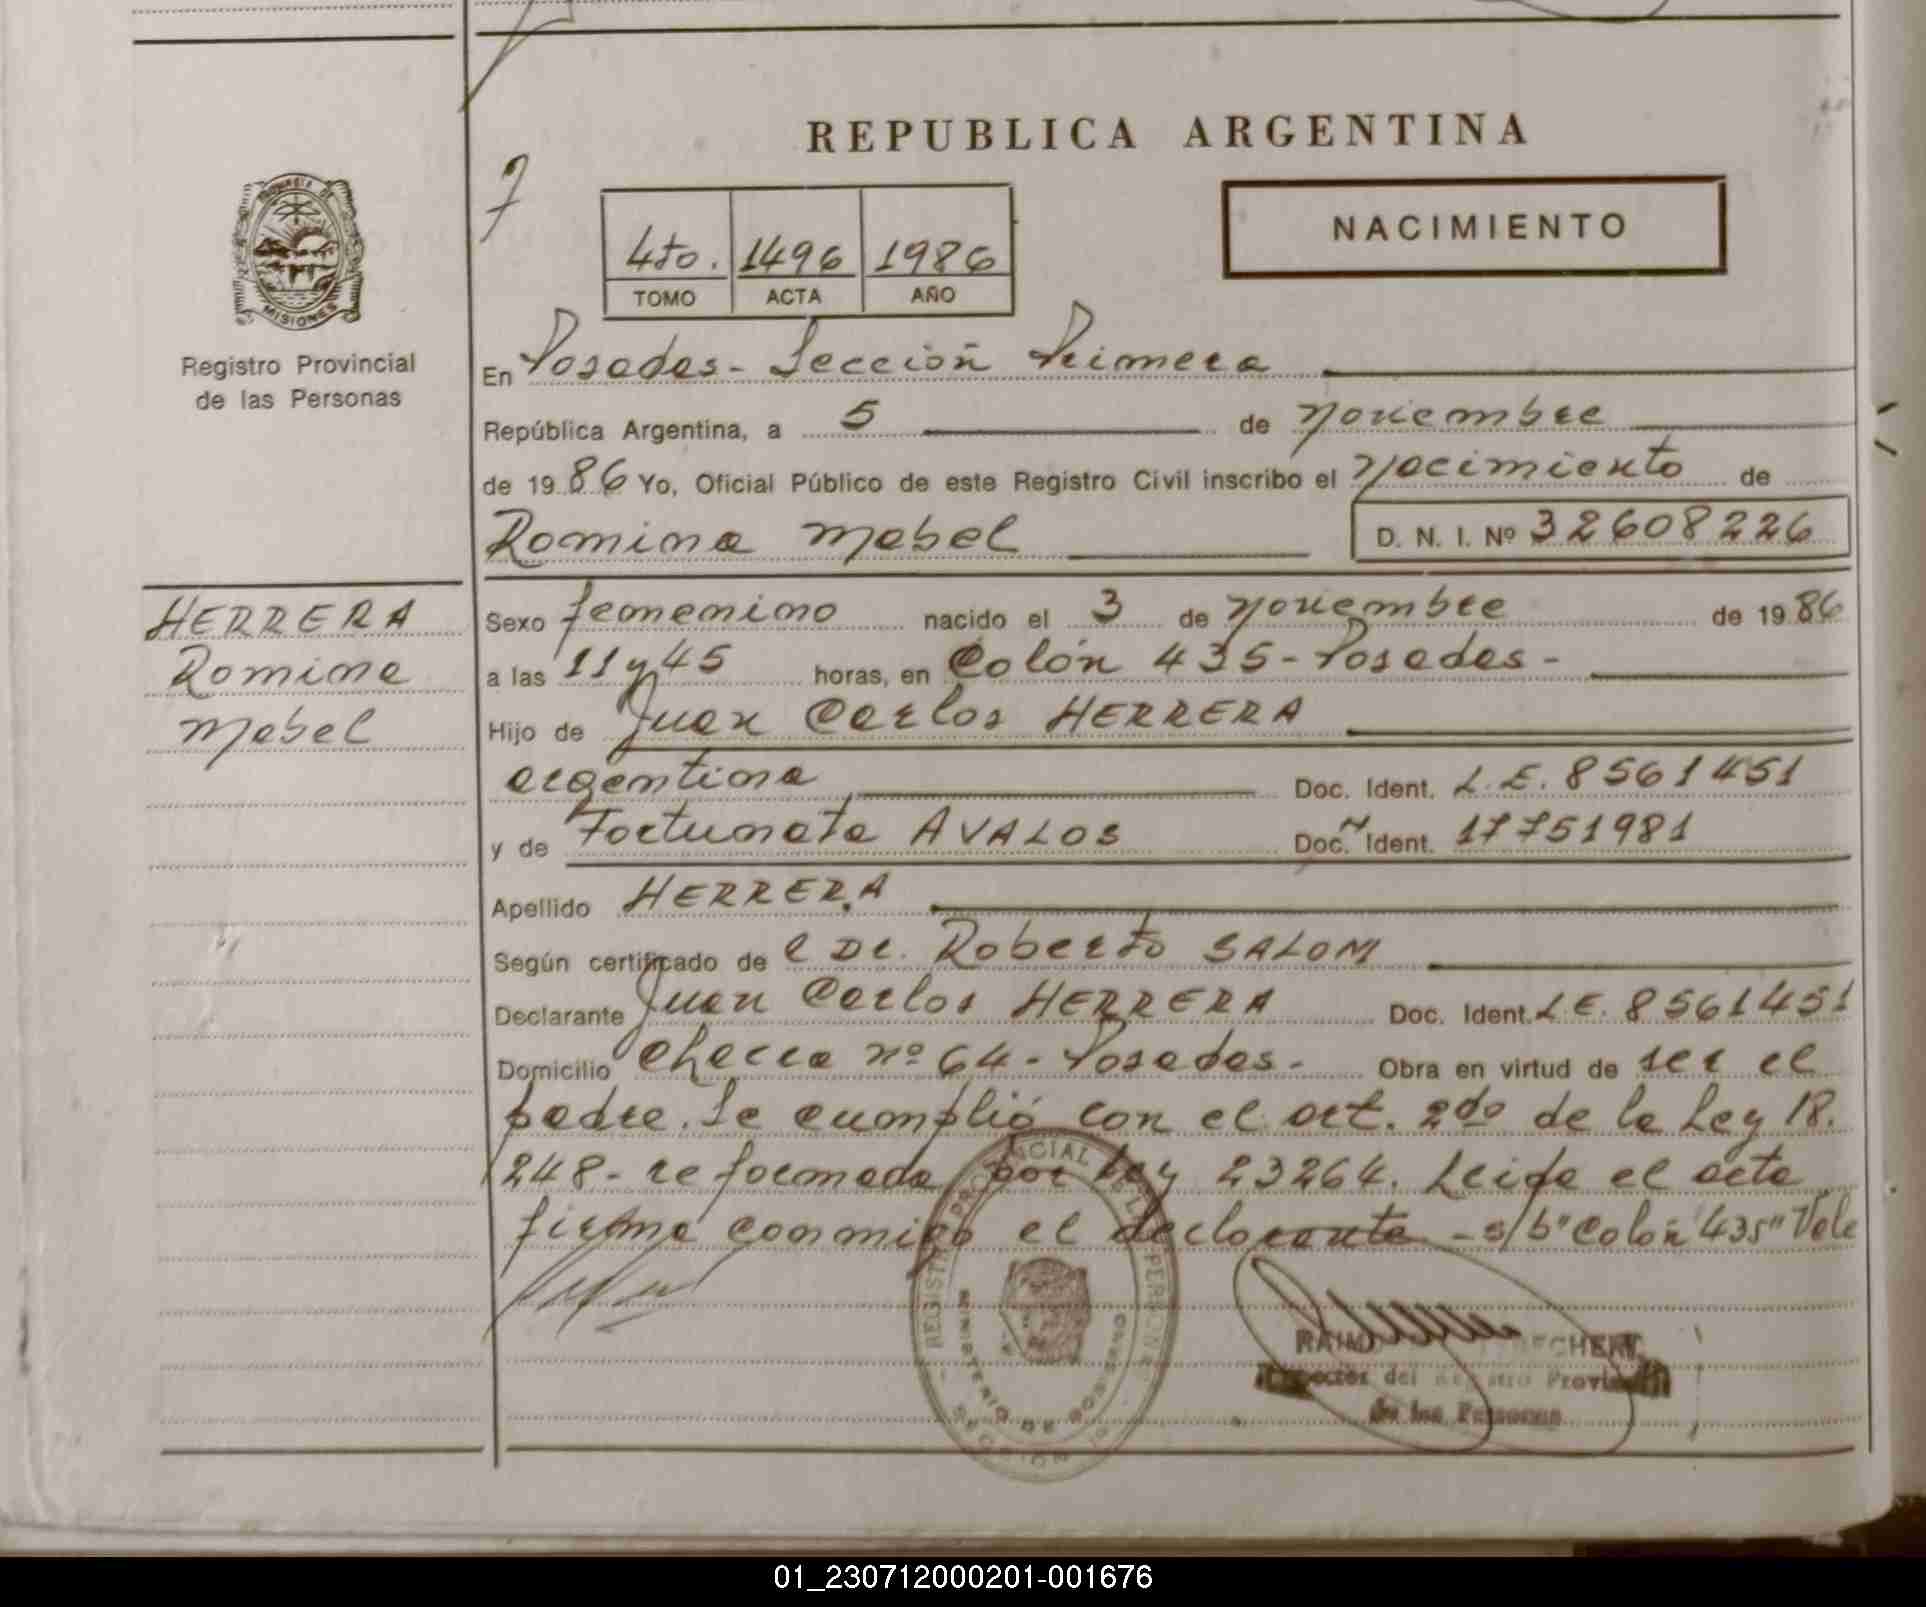 REPUBLICA ARGENTINA
NACIMIENTO
4to. 1496 1986
TOMO ACTA AÑO
MISIONES
Registro Provincial
de las Personas
En Posadas - Sección Primera
República Argentina, a 5 de noviembre
de 1986 Yo, Oficial Público de este Registro Civil inscribo el nacimiento de
Romina Mabel D. N. I. Nº 32608226
HERRERA
Romina
Mabel
Sexo femenino nacido el 3 de noviembre de 1986
a las 11 y 45 horas, en Colón 435 - Posadas -
Hijo de Juan Carlos HERRERA
argentina Doc. Ident. L.E. 8561451
y de Fortunata AVALOS Doc. Ident. 17751981
Apellido HERRERA
Según certificado de l Dr. Roberto SALOM
Declarante Juan Carlos HERRERA Doc. Ident. L.E. 8561451
Domicilio Checca nº 64 - Posadas - Obra en virtud de ser el
padre. Se cumplió con el art. 2do de la Ley 18.
248 - reformada por ley 23264. Leida el acta
firma conmigo el declarante - s/b "Colón 435" Vale
MINISTERIO DE GOBIERNO
del Registro Provincial
de las Personas
01_230712000201-001676